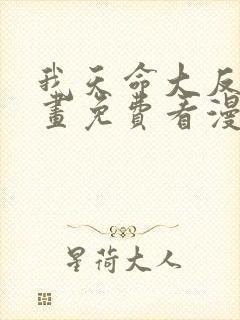 我天命大反
画免费看漫
星荷大人